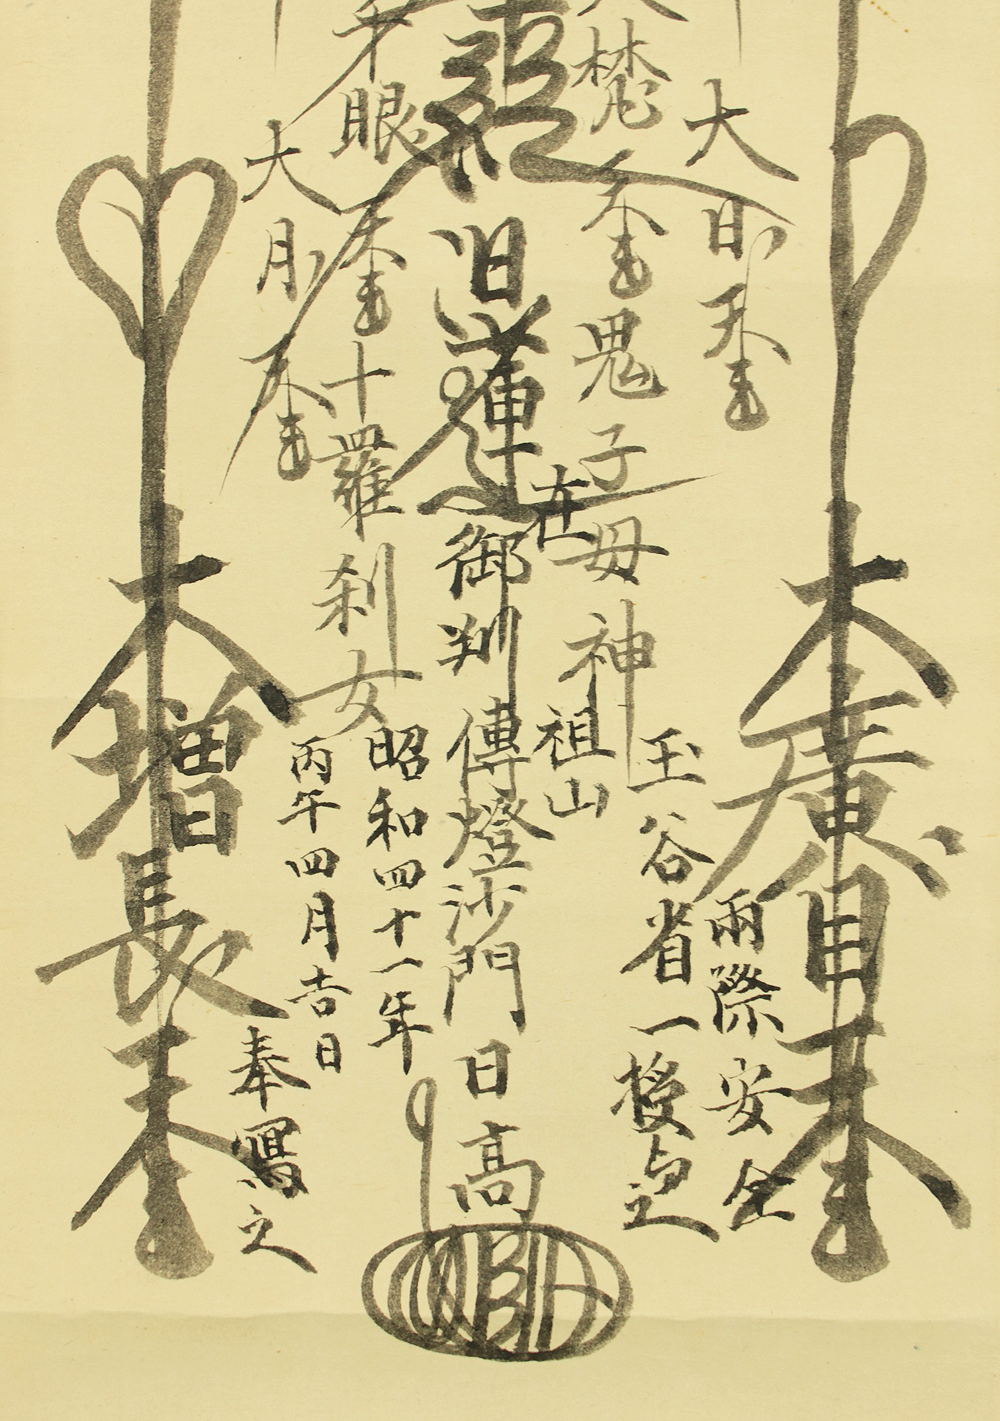 大廣目天
大日天
雨際安全
大梵天
鬼子母神
玉谷省一授与之
在
祖山
經
日蓮
御判
傳燈沙門
日高
眼天
十羅刹女
昭和四十一年
丙午四月吉日
大月天
奉寫之
大増長天